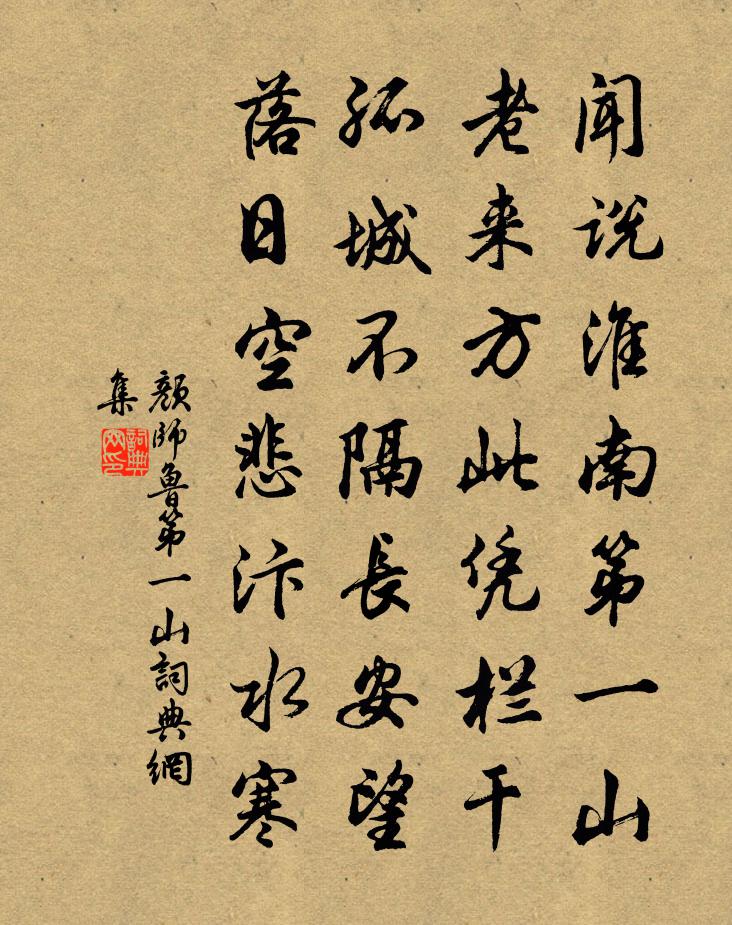 闻说淮南第一山
老来方此凭栏干
孤城不隔长安望
落日空悲汴水寒
颜师鲁第一山詞典網
集
詞典网印